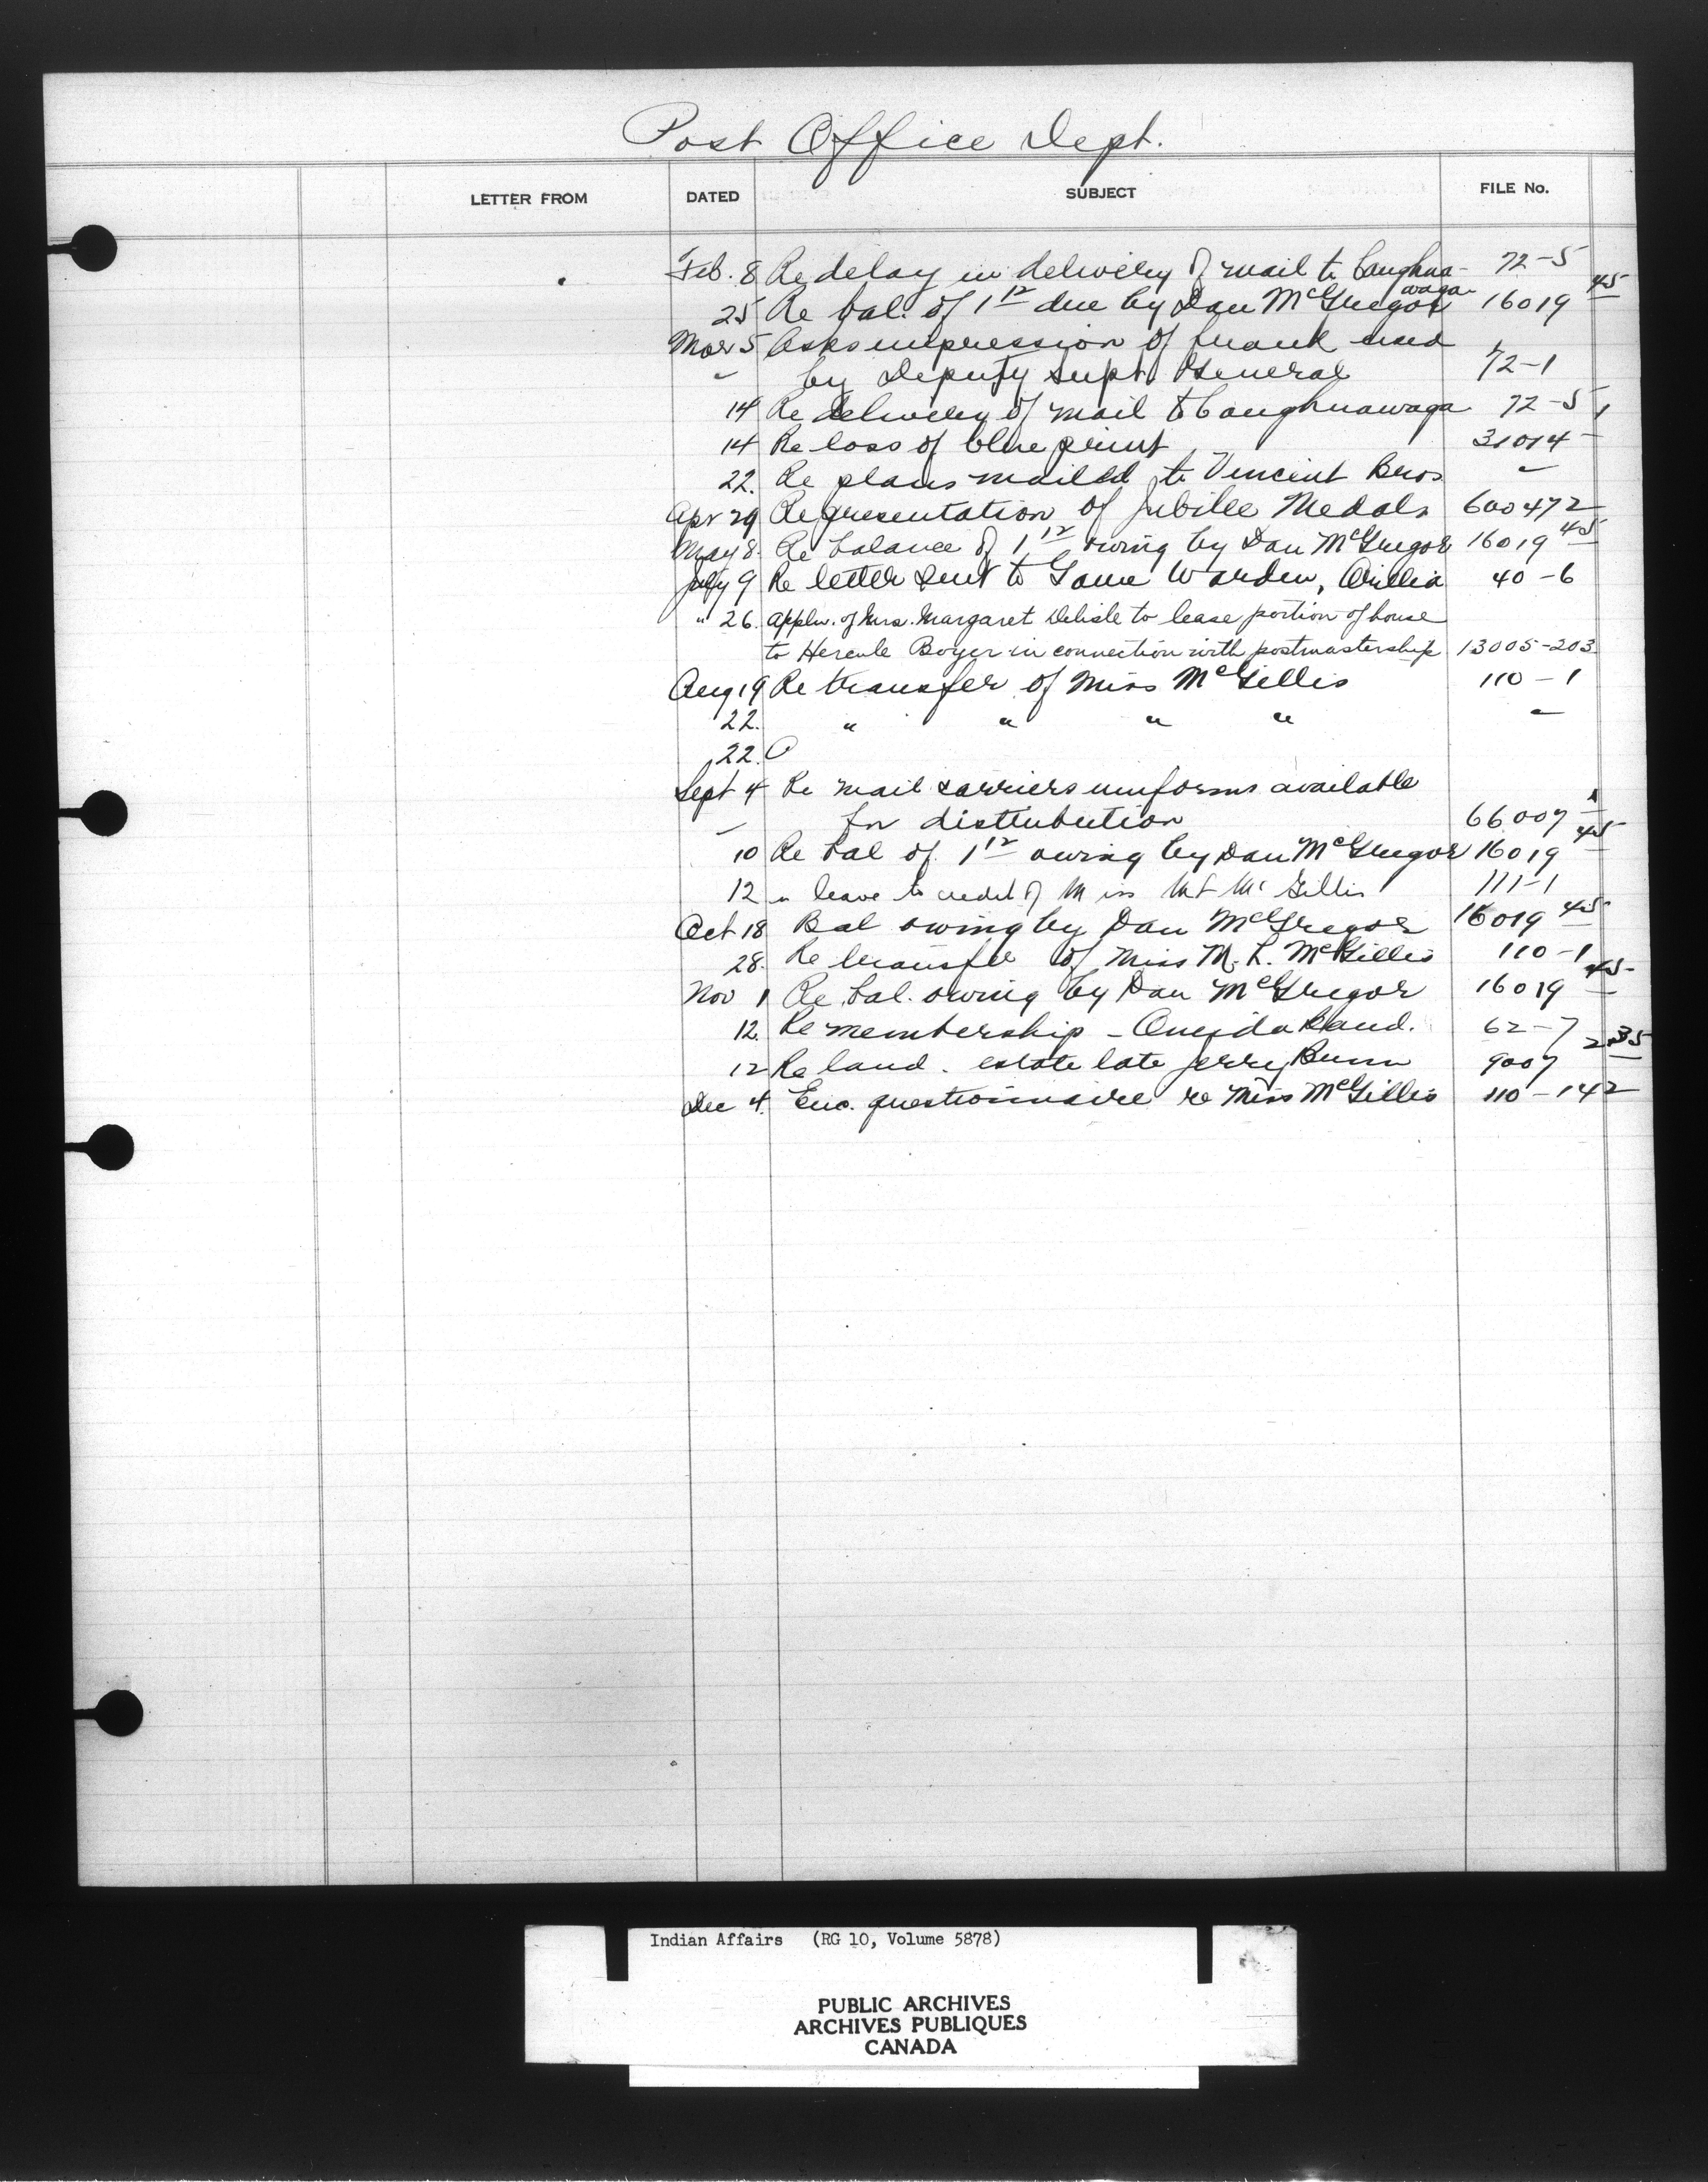 Post Office Dept.
LETTER FROM DATED SUBJECT FILE No.
Feb. 8 Re delay in delivery of mail to Caughna- 72-5
waga
25 Re bal. of 1 12 due by Dan McGregor 16019 45
Mar 5 Asks impression of frank used
" by Deputy Supt. General 72-1
14 Re delivery of mail to Caughnawaga 72-5
14 Re loss of blue print 31014 1
22. Re plans mailed to Vincent Bros "
Apr 29 Re presentation of Jubilee Medals 600472
May 8. Re balance of 1 12 owing by Dan McGregor 16019 45
July 9 Re letter sent to Game Warden, Orillia 40-6
" 26. Appln. of Mrs. Margaret Delisle to lease portion of house
to Hercule Boyer in connection with postmastership 13005-203
Aug 19 Re transfer of Miss McGillis 110-1
22. " " " " "
22.
Sept 4 Re mail carriers uniforms available
" for disttubution 66007 1
10 Re bal of 1 12 owing by Dan McGregor 16019 45
12 " leave to credit of Miss McGillis 111-1
Oct 18 Bal owing by Dan McGregor 16019 45
28. Re transfer of Miss M. L. McGillis 110-1
Nov 1 Re bal. owing by Dan McGregor 16019 45
12. Re membership - Oneida Band. 62-7
12 Re land. estate late Jerry Bunn 9007 235
Dec 4. Enc. questionnaire re Miss McGillis 110-142
Indian Affairs (RG 10, Volume 5878)
PUBLIC ARCHIVES
ARCHIVES PUBLIQUES
CANADA